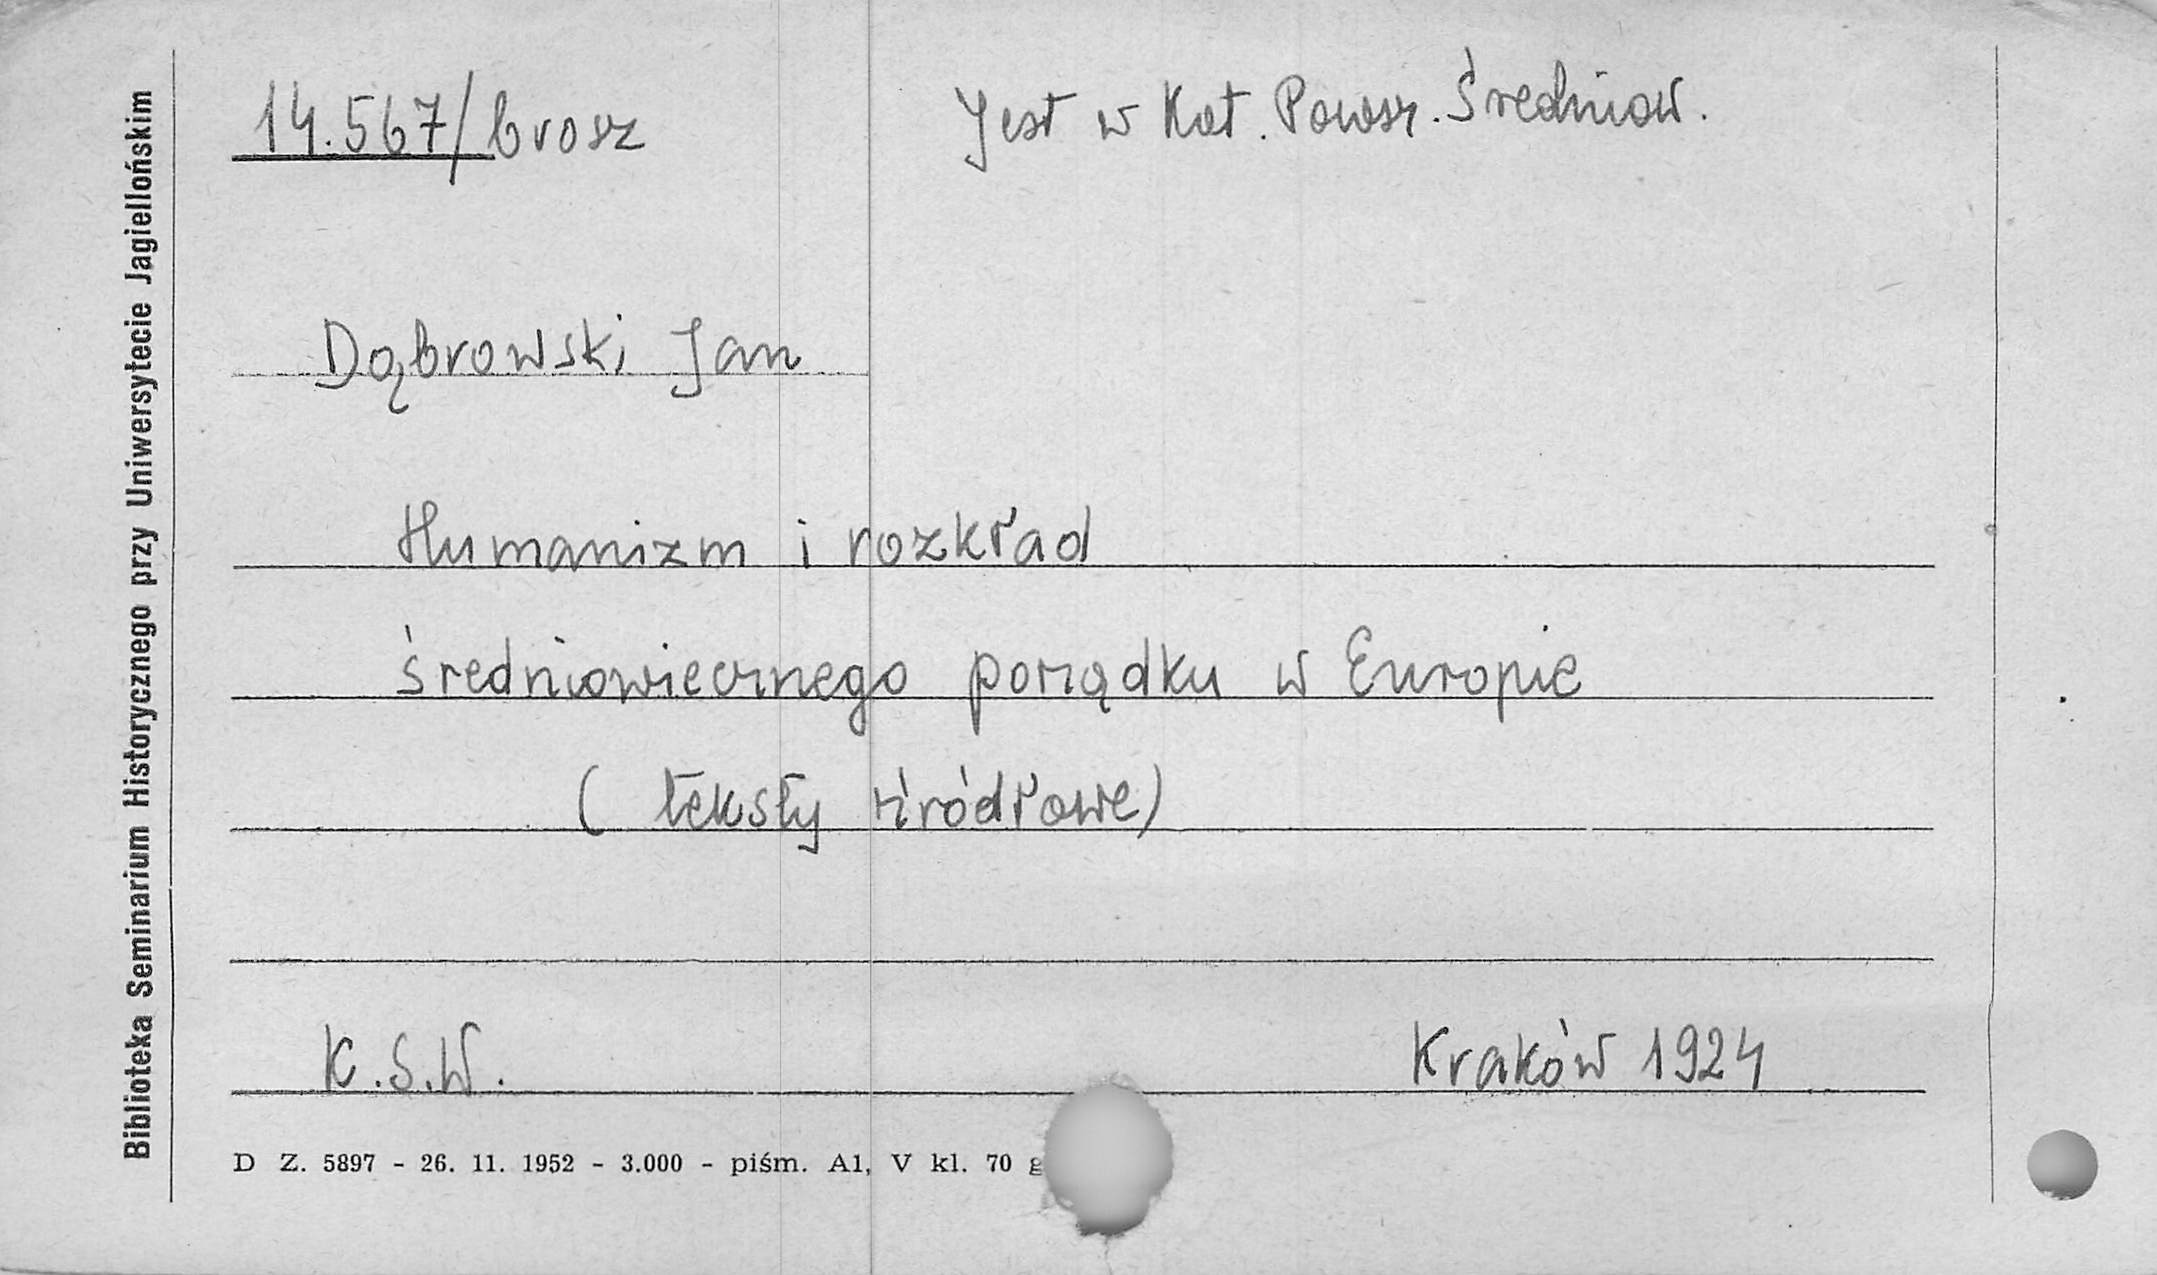 14.567/brosz
Jest w Kat. Powsz. Średniow.
Dąbrowski Jan
Humanizm i rozkład
średniowiecznego porządku w Europie
(teksty źródłowe)
K.S.W.
Kraków 1924
D Z. 5897 - 26. 11. 1952 - 3.000 - piśm. A1, V kl. 70 g
Biblioteka Seminarium Historycznego przy Uniwersytecie Jagiellońskim